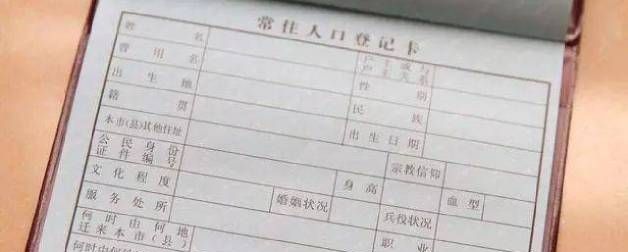 常住人口登记卡
姓名 户主或与户主关系
曾用名 性别
出生地 民族
籍贯 出生日期
本市(县)其他住址 宗教信仰
公民身份证件编号 身高 血型
文化程度 婚姻状况 兵役状况
服务处所 职业
何时由何地迁来本市(县)
何时由何